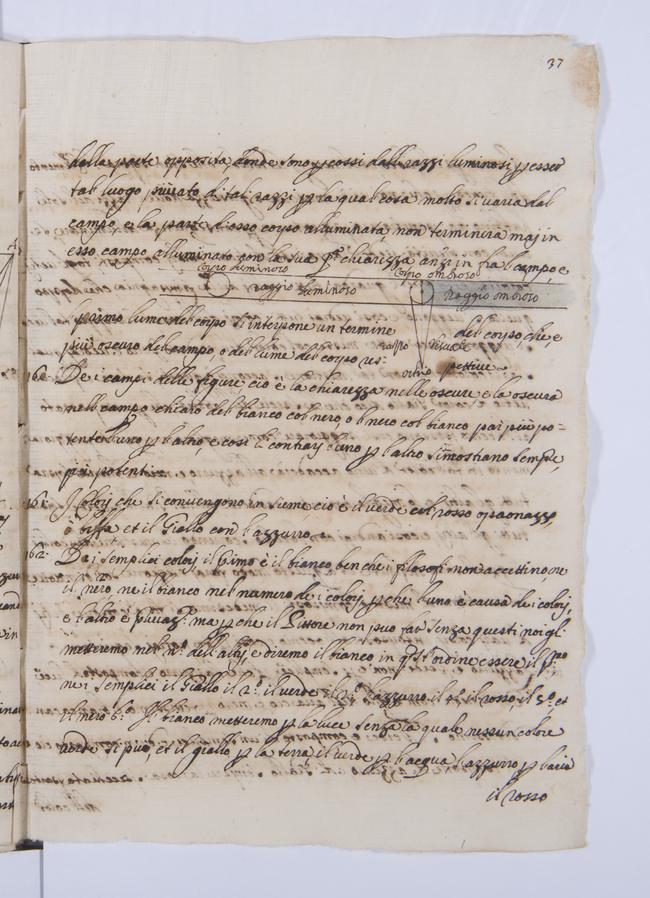 37
dalla parte opposita, donde sono pcossi dalli razzi luminosi p esser
tal luogo privato di tali razzi p la qual cosa molto si varia dal
campo, e la parte d'esso corpo alluminata, non terminirà maj in
esso campo alluminato con la sua pᵃ chiarezza anzi in fra l campo, e
corpo luminoso
corpo ombroso
raggio luminoso
Raggio ombroso
primo lume del corpo si interpone un termine del corpo che, e
più oscuro del campo, o del lume del corpo
160. De i campi delle figure cio è la chiarezza nelle oscure e la oscura
nell campo chiaro del bianco col nero, o l nero col bianco pai più po=
tente l'uno p l'altro, e così li contrarj l'uno p l'altro si mostrano sempre,
più potenti.
161. I colorj che si convengono insieme cio è il verde col rosso o paonazzo
o biffa et il Giallo con l'azzurro.
162. De i semplici colorj il pimo è il bianco, ben che i filosofi non accettino, ne
il nero, ne il bianco nel numero de i colorj, p che l'uno è causa de i colorj,
e l'altro è pivazᵉ. ma p che il Pittore non può far senza questi noi gl:
metteremo nel nº. dell altrj, e diremo il bianco in qstº ordine essere il pᵐᵒ
ne i semplici il Giallo il 2º. il verde il 3º. l'azzurro il 4º. il rosso il 5º. et
il nero 6º: Jl bianco metteremo p la luce senza la quale nessun colore
veder si può, et il giallo p la terra il verde p l'acqua l'azzurro p l'aria
il rosso